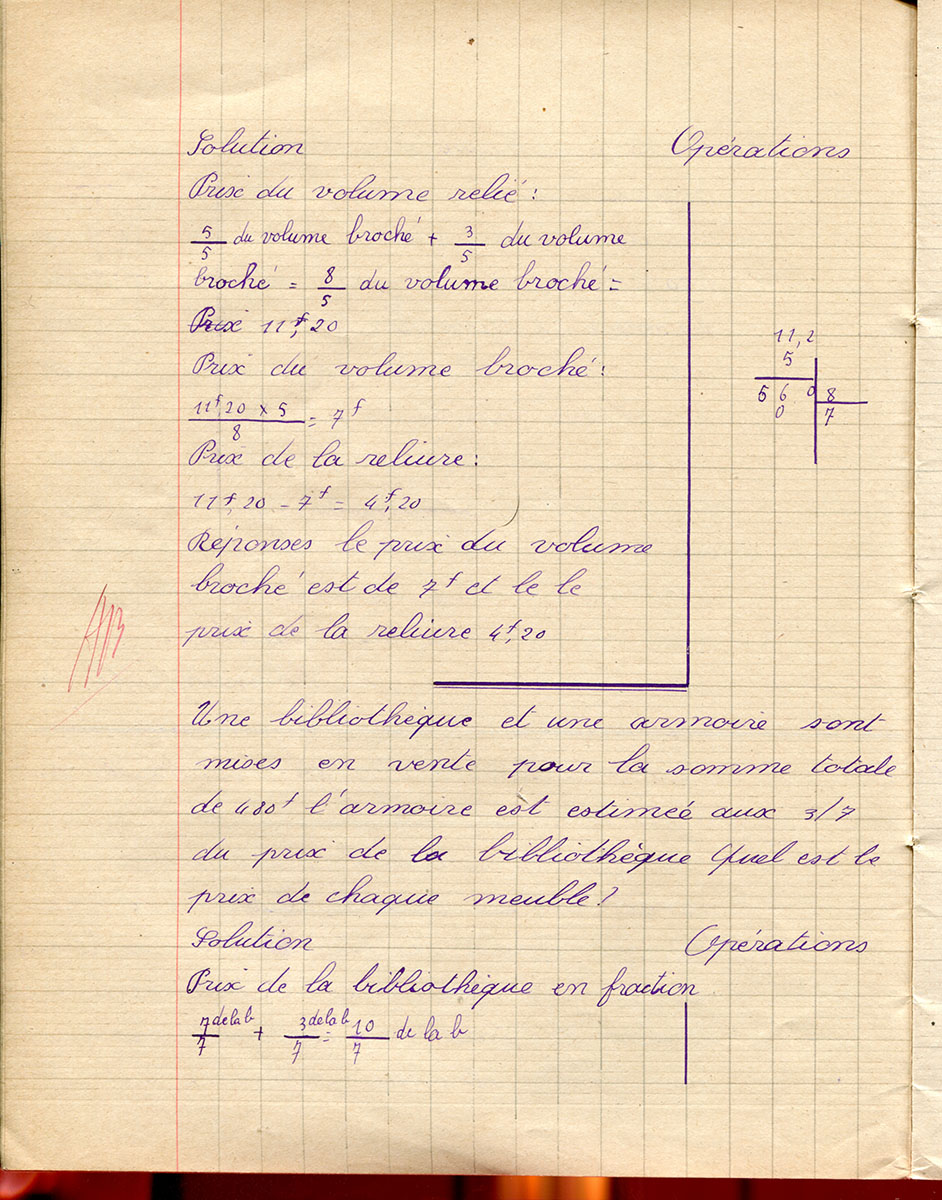 Solution
Opérations
Prix du volume relié :
5/5 du volume broché + 3/5 du volume
broché = 8/5 du volume broché =
Prix 11f,20
Prix du volume broché :
11f,20 x 5 / 8 = 7f
Prix de la reliure :
11f,20 - 7f = 4f,20
Réponses le prix du volume
broché est de 7f et le le
prix de la reliure 4f,20
11,2
5
56 0 8
0 7
Une bibliothèque et une armoire sont
mises en vente pour la somme totale
de 480f l'armoire est estimeé aux 3/7
du prix de la bibliothèque Quel est le
prix de chaque meuble?
Solution
Opérations
Prix de la bibliothèque en fraction
7/7 de la b + 3/7 de la b = 10/7 de la b